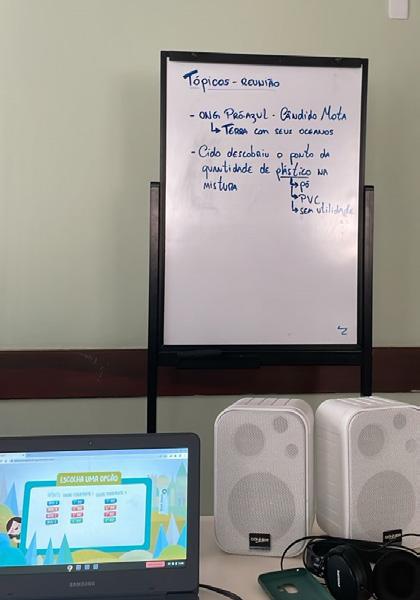 Tópicos - Reunião
- ONG Pró-Azul - Cândido Mota
↳ Terra com seus oceanos
- Cido descobriu o ponto da
quantidade de plástico na
mistura
↳ pó
↳ PVC
↳ sem utilidade
ESCOLHA UMA OPÇÃO
SAMSUNG